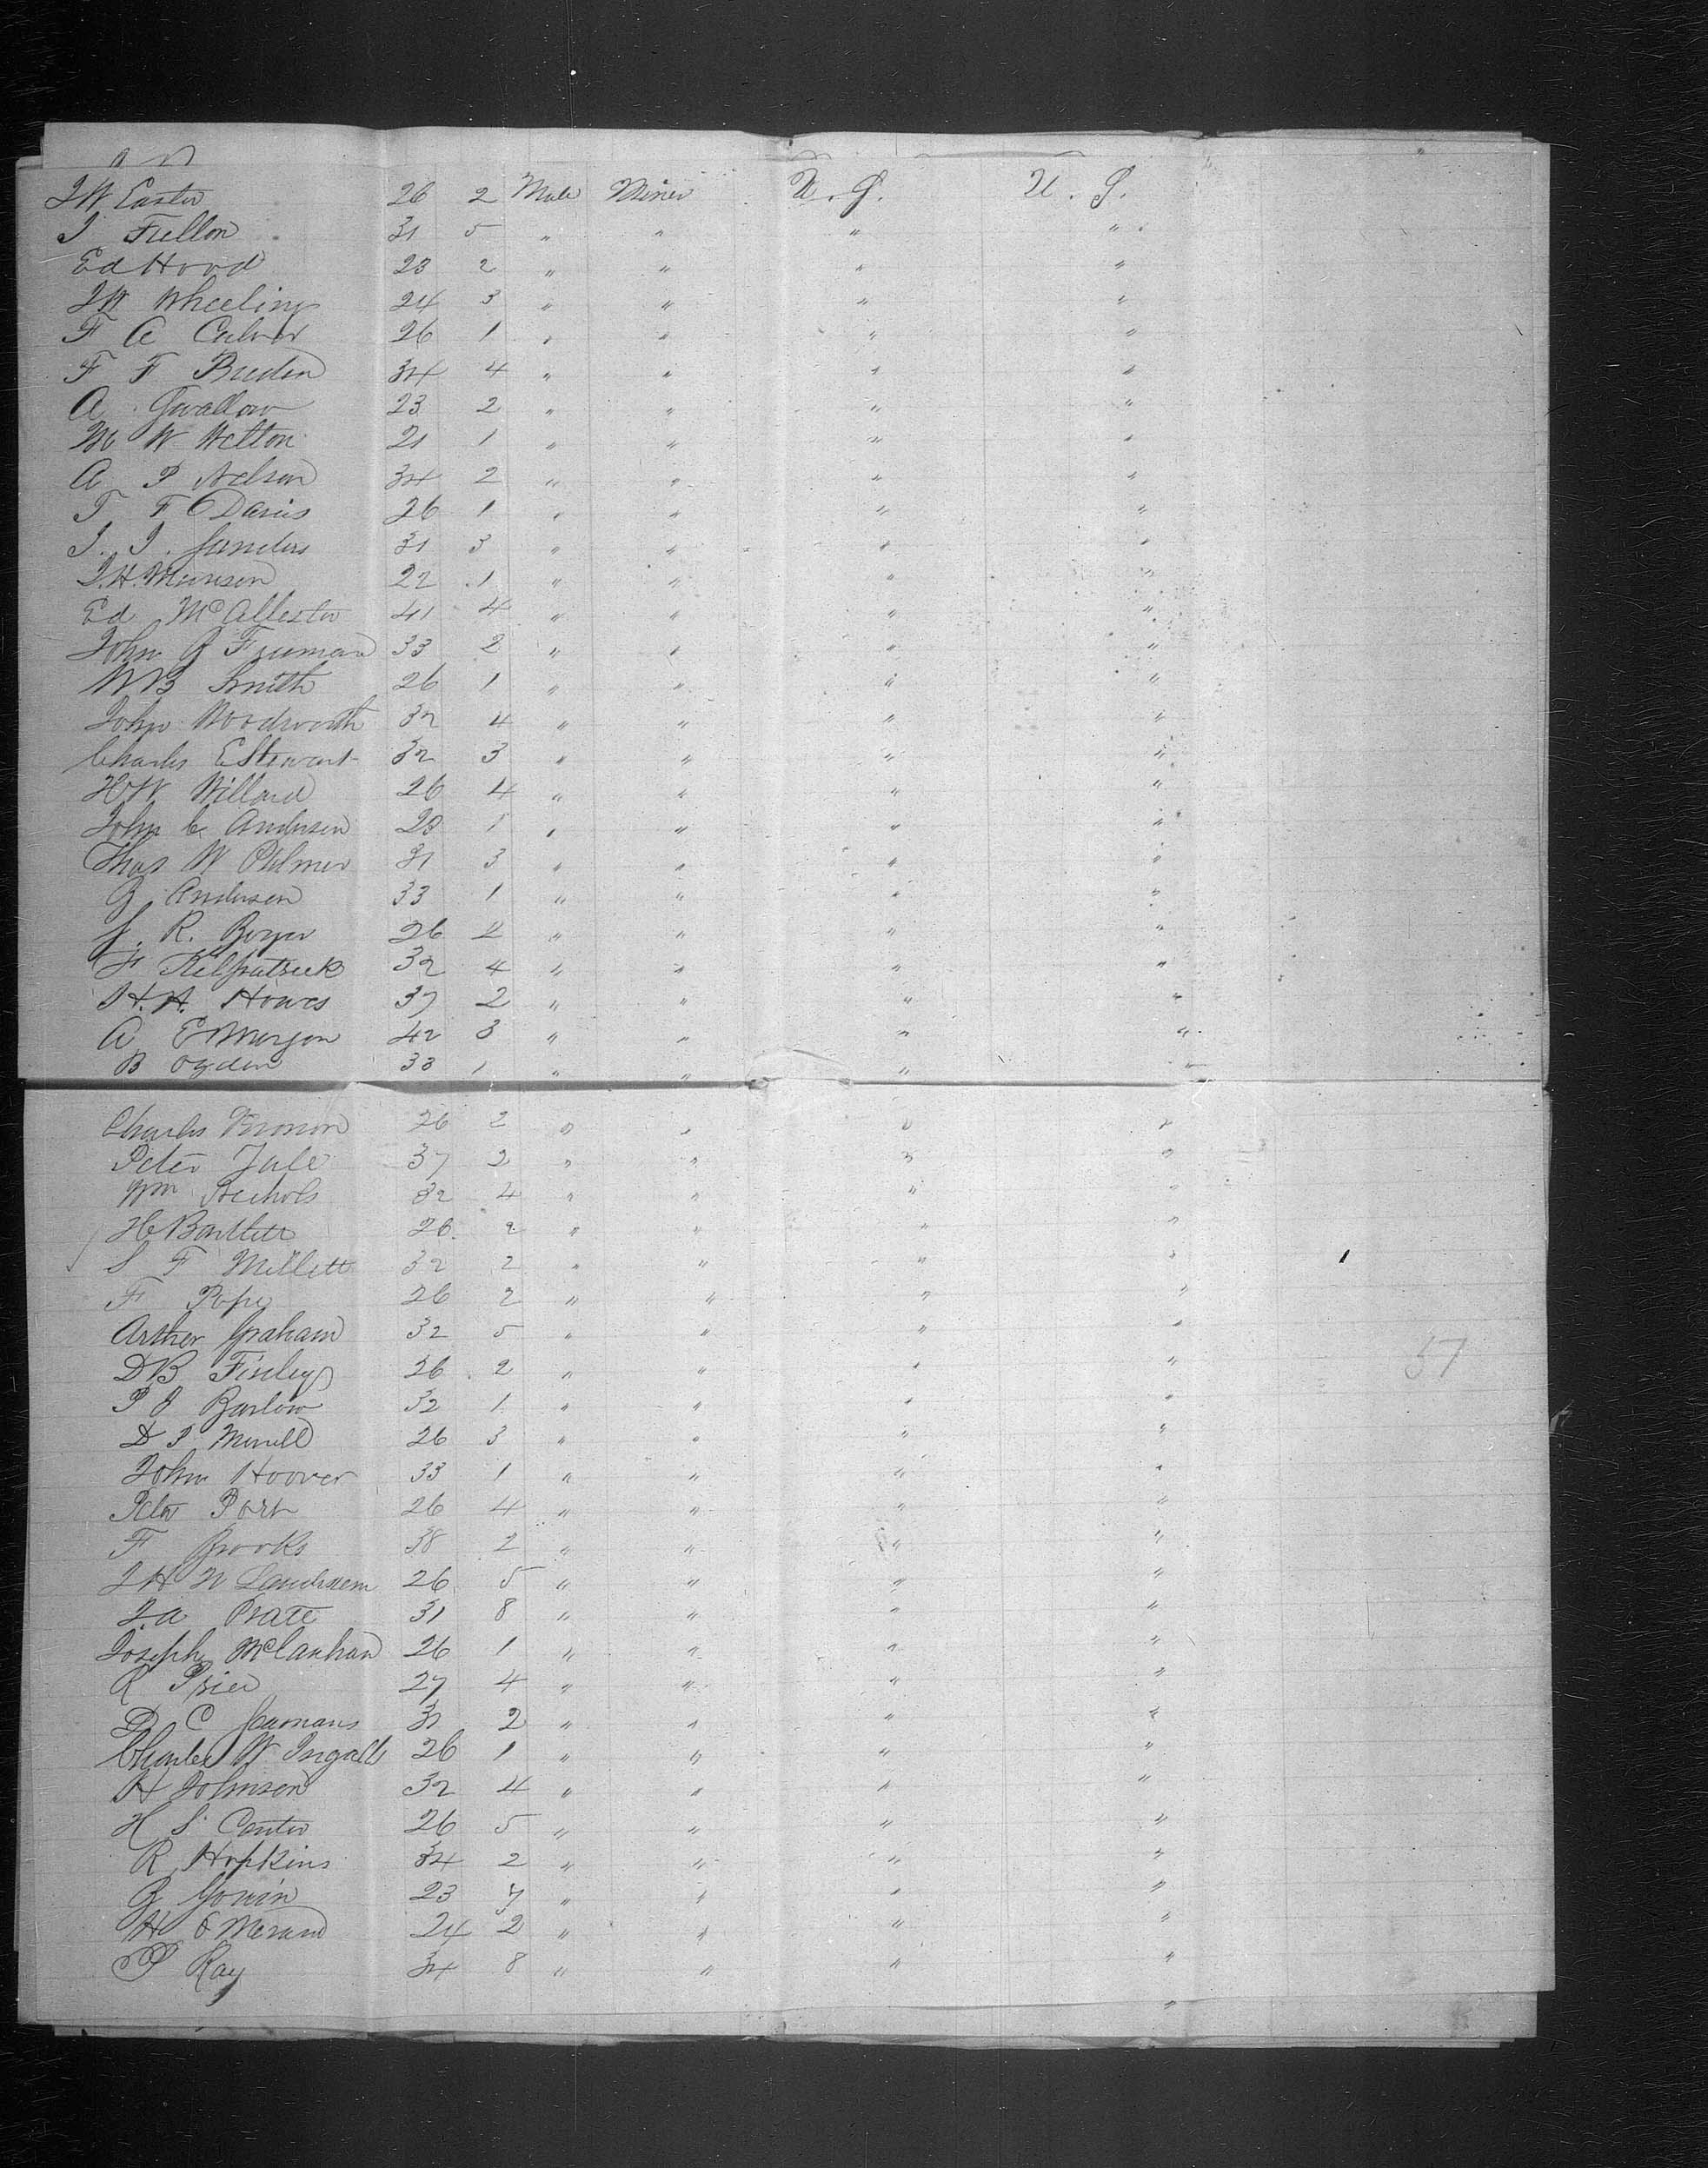 J W Easter 26 2 Male Miner U. S. U. S.
J Fullon 31 5 " " " "
Ed Hood 23 2 " " " "
J W Wheeling 24 3 " " " "
F A Culver 26 1 " " " "
F F Breden 34 4 " " " "
A Swallow 23 2 " " " "
M W Helton 21 1 " " " "
A P Nelson 34 2 " " " "
T F Davis 26 1 " " " "
J. J. Sanders 31 3 " " " "
J. H. Munson 22 1 " " " "
Ed McAllester 41 4 " " " "
John G Freeman 33 2 " " " "
W B Smith 26 1 " " " "
John Woodworth 32 4 " " " "
Charles E Stewart 32 3 " " " "
H W Willard 26 4 " " " "
John C Anderson 23 1 " " " "
Thos W Palmer 31 3 " " " "
G Anderson 33 1 " " " "
S. R. Boyer 26 2 " " " "
F Kilpatrick 32 4 " " " "
H. H. Howes 37 2 " " " "
A E Morgan 42 3 " " " "
B Ogden 33 1 " " " "
Charles Bronson 26 2 " " " "
Peter Yule 37 2 " " " "
Wm Nichols 32 4 " " " "
H Bartlett 26 2 " " " "
S F Millett 32 2 " " " "
F Pope 26 2 " " " "
Arther Graham 32 5 " " " "
D B Finley 26 2 " " " " 57
P J Barlow 32 1 " " " "
D P Merrill 26 3 " " " "
John Hoover 33 1 " " " "
Peter Port 26 4 " " " "
F Brooks 38 2 " " " "
J H N 26 5 " " " "
J. A Prate 31 8 " " " "
Joseph McClanhan 26 1 " " " "
R Price 27 4 " " " "
D C Seamans 31 2 " " " "
Charles W. Ingalls 26 1 " " " "
H Johnson 32 4 " " " "
H S Carter 26 5 " " " "
R Hopkins 34 2 " " " "
G Gowin 23 7 " " " "
H O 24 2 " " " "
P Ray 34 8 " " " "
"